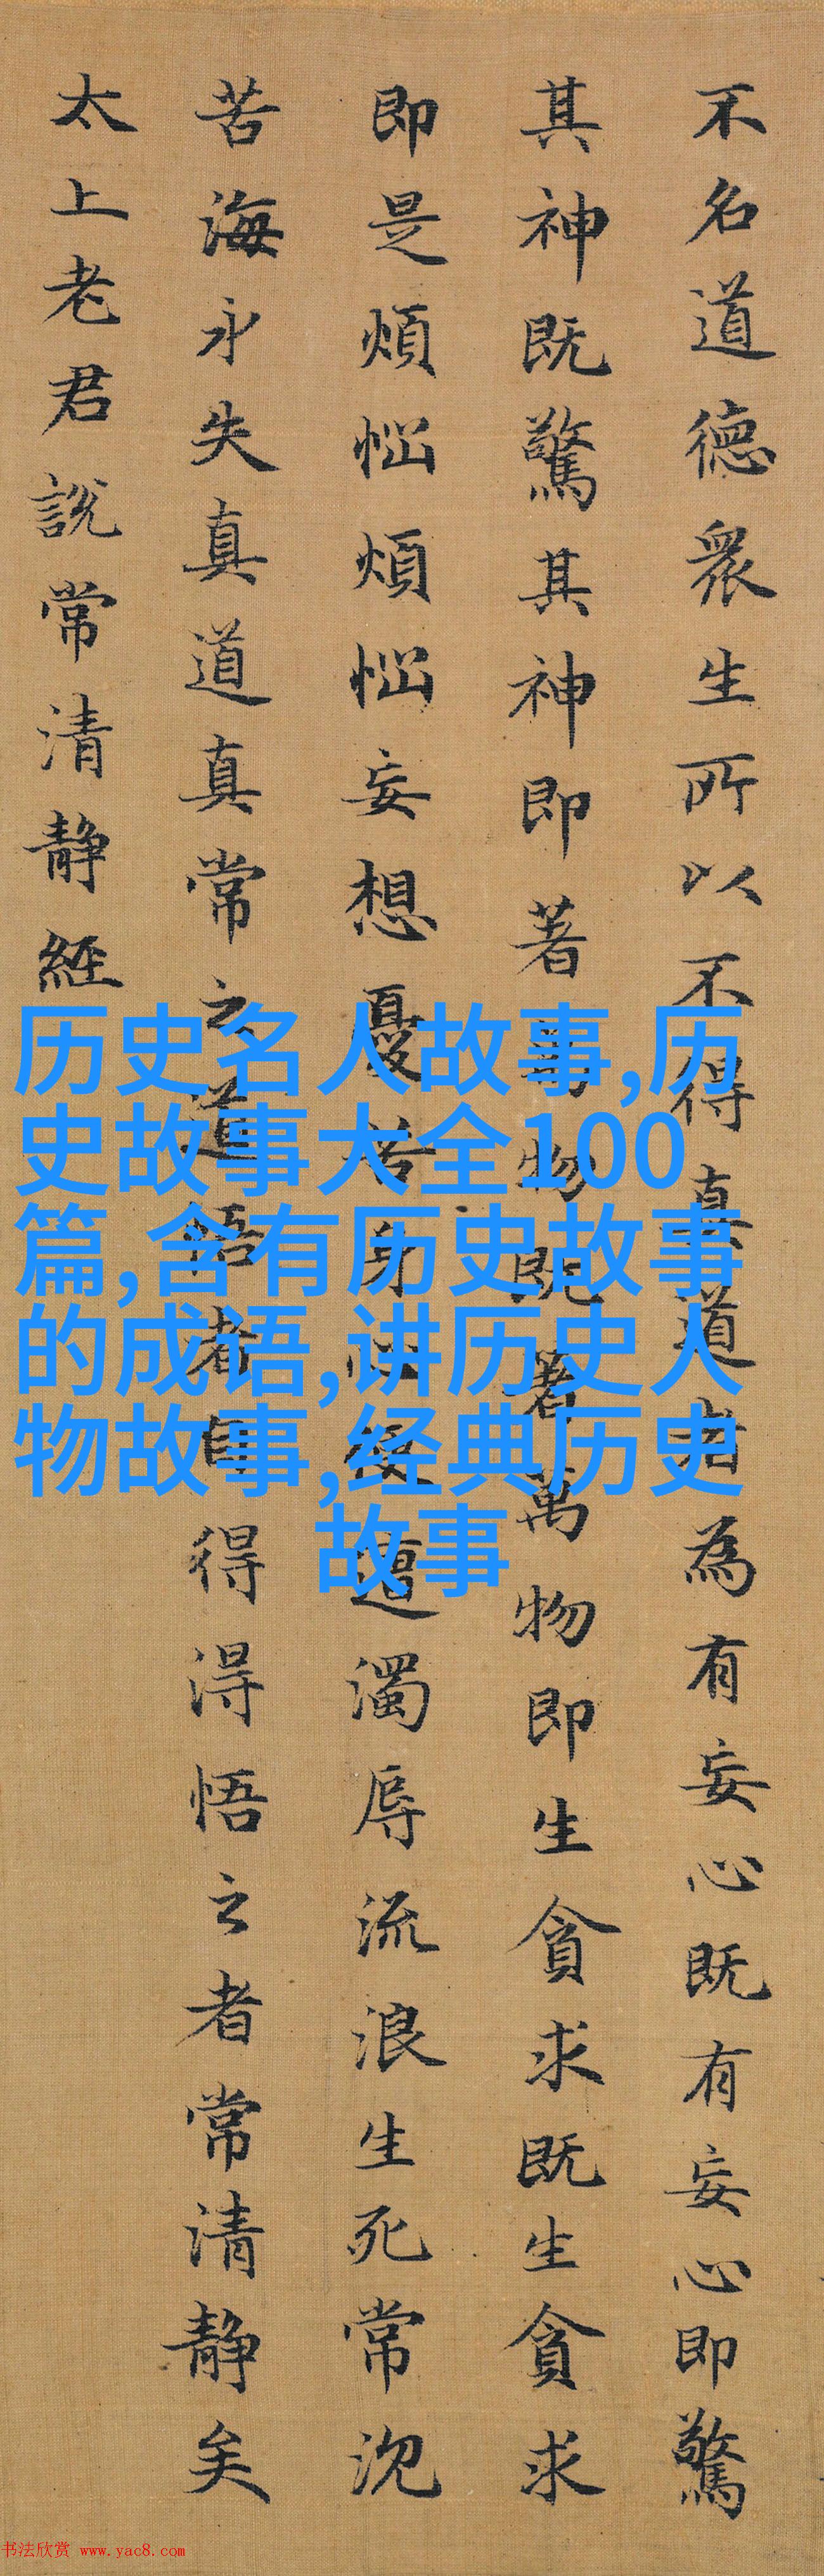 不名道德眾生所以不得真道者為有妄心既有妄心即驚
其神既驚其神即著萬物既著萬物即生貪求既生貪求
即是煩惱煩惱妄想憂苦身心便遭濁辱流浪生死常沉
苦海永失真道真常之道悟者自得淂悟之者常清静矣
太上老君說常清静經
历史名人故事,历
史故事大全100
篇,含有历史故事
的成语,讲历史人
物故事,经典历史
故事
书法欣赏 www.yac8.com